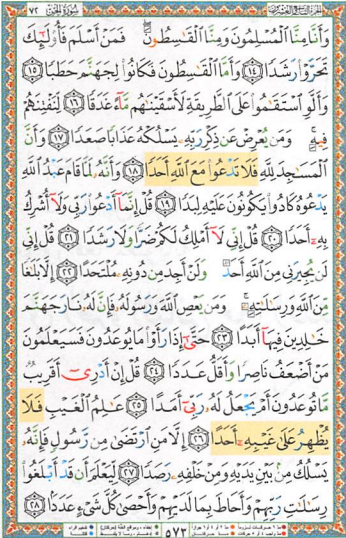 الجزء التاسع والعشرون سورة الجن ٧٢
وَأَنَّا مِنَّا الْمُسْلِمُونَ وَمِنَّا الْقَاسِطُونَ فَمَنْ أَسْلَمَ فَأُولَٰئِكَ
تَحَرَّوْا رَشَدًا ١٤ وَأَمَّا الْقَاسِطُونَ فَكَانُوا لِجَهَنَّمَ حَطَبًا ١٥
وَأَلَّوِ اسْتَقَامُوا عَلَى الطَّرِيقَةِ لَأَسْقَيْنَاهُم مَّاءً غَدَقًا ١٦ لِّنَفْتِنَهُمْ
فِيهِ وَمَن يُعْرِضْ عَن ذِكْرِ رَبِّهِ يَسْلُكْهُ عَذَابًا صَعَدًا ١٧ وَأَنَّ
الْمَسَاجِدَ لِلَّهِ فَلَا تَدْعُوا مَعَ اللَّهِ أَحَدًا ١٨ وَأَنَّهُ لَمَّا قَامَ عَبْدُ اللَّهِ
يَدْعُوهُ كَادُوا يَكُونُونَ عَلَيْهِ لِبَدًا ١٩ قُلْ إِنَّمَا أَدْعُو رَبِّي وَلَا أُشْرِكُ
بِهِ أَحَدًا ٢٠ قُلْ إِنِّي لَا أَمْلِكُ لَكُمْ ضَرًّا وَلَا رَشَدًا ٢١ قُلْ إِنِّي
لَن يُجِيرَنِي مِنَ اللَّهِ أَحَدٌ وَلَنْ أَجِدَ مِن دُونِهِ مُلْتَحَدًا ٢٢ إِلَّا بَلَاغًا
مِّنَ اللَّهِ وَرِسَالَاتِهِ وَمَن يَعْصِ اللَّهَ وَرَسُولَهُ فَإِنَّ لَهُ نَارَ جَهَنَّمَ
خَالِدِينَ فِيهَا أَبَدًا ٢٣ حَتَّىٰ إِذَا رَأَوْا مَا يُوعَدُونَ فَسَيَعْلَمُونَ
مَنْ أَضْعَفُ نَاصِرًا وَأَقَلُّ عَدَدًا ٢٤ قُلْ إِنْ أَدْرِي أَقَرِيبٌ
مَّا تُوعَدُونَ أَمْ يَجْعَلُ لَهُ رَبِّي أَمَدًا ٢٥ عَالِمُ الْغَيْبِ فَلَا
يُظْهِرُ عَلَىٰ غَيْبِهِ أَحَدًا ٢٦ إِلَّا مَنِ ارْتَضَىٰ مِن رَّسُولٍ فَإِنَّهُ
يَسْلُكُ مِن بَيْنِ يَدَيْهِ وَمِنْ خَلْفِهِ رَصَدًا ٢٧ لِّيَعْلَمَ أَن قَدْ أَبْلَغُوا
رِسَالَاتِ رَبِّهِمْ وَأَحَاطَ بِمَا لَدَيْهِمْ وَأَحْصَىٰ كُلَّ شَيْءٍ عَدَدًا ٢٨
٥٧٣